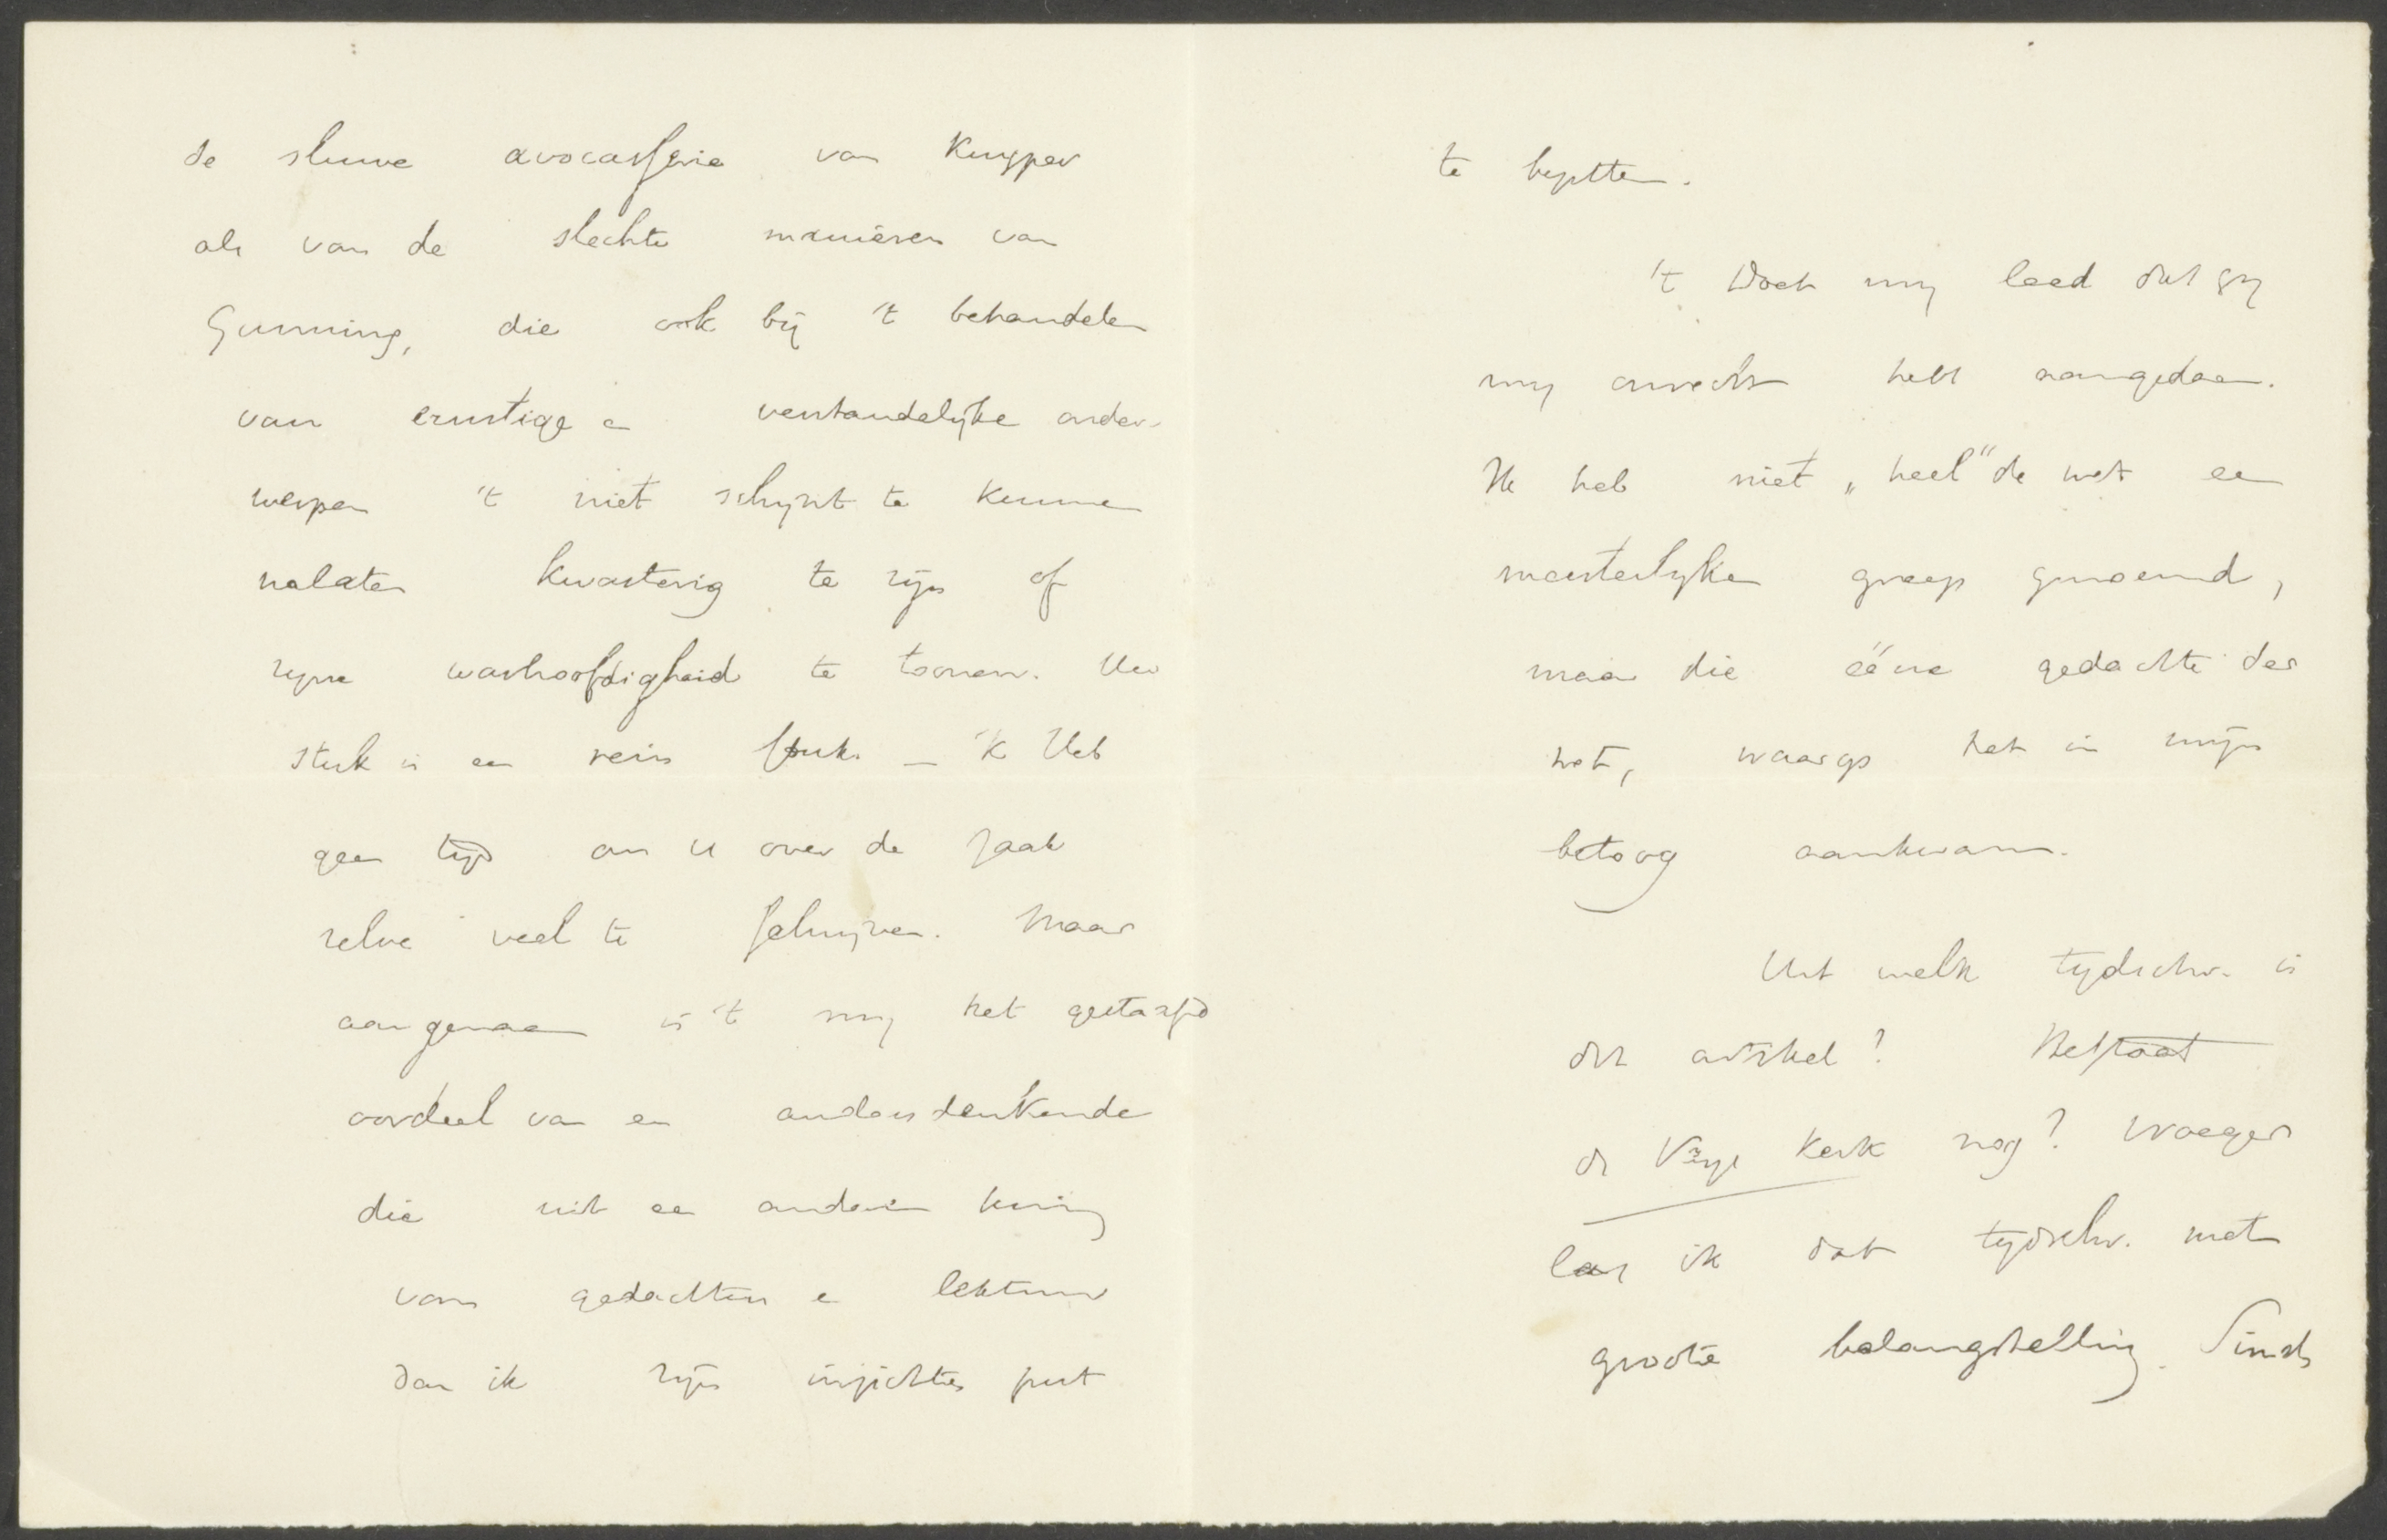 de sluwe avocasserie van Kuyper
als van de slechte manieren van
Gunning, die ook bij 't behandelen
van ernstige en verstandelijke onder-
werpen 't niet schijnt te kunnen
nalaten kwasterig te zijn of
zijne warhoofdigheid te toonen. Uw
stuk is een rein stuk. — 'k Heb
geen tijd om u over de zaak
zelve veel te schrijven. Maar
aangenaam is 't mij het gestaafd
oordeel van een andersdenkende
die uit een anderen kring
van gedachten en lektuur
dan ik zijn inzichten put
te bezitten.
't Doet mij leed dat gij
mij onrecht hebt aangedaan.
Ik heb niet „heel" de wet een
meesterlyken greep genoemd,
maar die ééne gedachte der
wet, waarop het in mijn
betoog aankwam.
Uit welk tydschr. is
dit artikel? Bestaat
de Vrye Kerk nog? Vroeger
las ik dat tydschr. met
groote belangstelling. Sinds